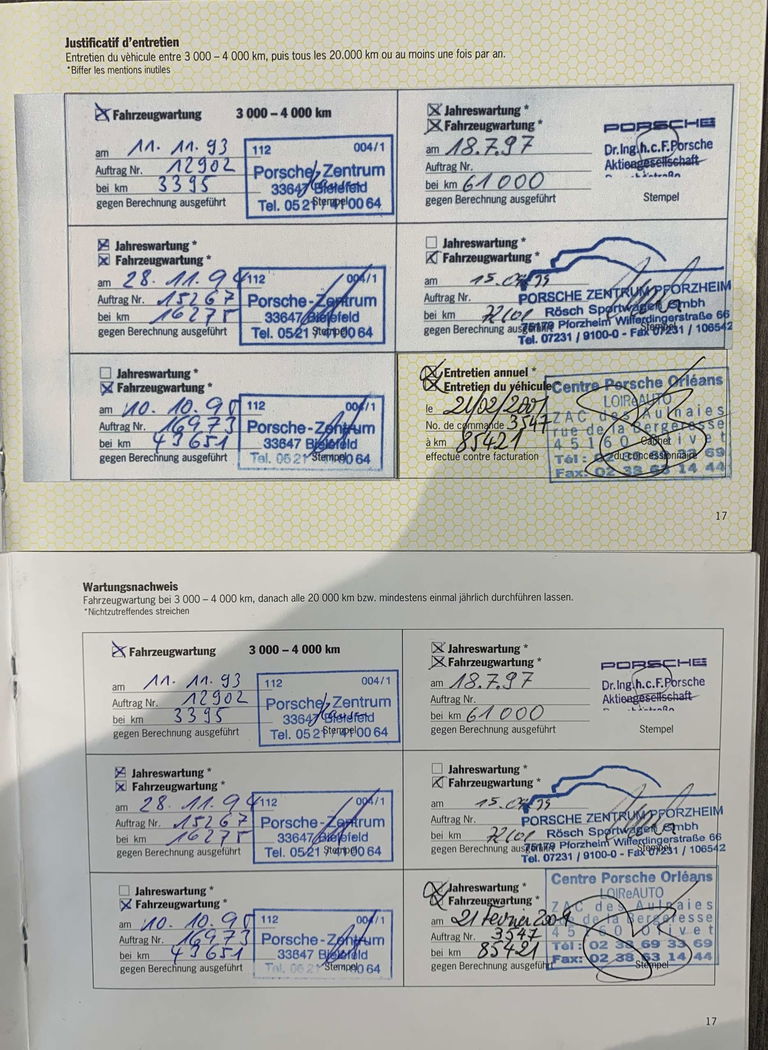 Justificatif d'entretien
Entretien du vèhicule entre 3 000 – 4 000 km, puis tous les 20.000 km ou au moins une fois par an.
*Biffer les mentions inutiles
Fahrzeugwartung 3 000 – 4 000 km
am 11. 11. 93
Auftrag Nr. 12902
bei km 3395
gegen Berechnung ausgeführt
112 004/1
Porsche-Zentrum
33647 Bielefeld
Stempel
Jahreswartung *
Fahrzeugwartung *
am 18.7.97
Auftrag Nr.
bei km 61000
gegen Berechnung ausgeführt
PORSCHE
Dr.Ing.h.c.F.Porsche
Aktiengesellschaft
Stempel
Jahreswartung *
Fahrzeugwartung *
am 28. 11. 94
Auftrag Nr. 15267
bei km 16275
gegen Berechnung ausgeführt
112 004/1
Porsche-Zentrum
33647 Bielefeld
Tel. 0521 Stempel 00 64
Jahreswartung *
Fahrzeugwartung *
am 15.
Auftrag Nr.
bei km
gegen Berechnung
PORSCHE ZENTRUM PFORZHEIM
Rösch Sportwagen Gmbh
75179 Pforzheim Wilferdingerstraße 66
Tel. 07231 / 9100-0 - Fax 07231 / 106542
Jahreswartung *
Fahrzeugwartung *
am 10. 10. 95
Auftrag Nr. 16973
bei km 43651
gegen Berechnung ausgeführt
112 004/1
Porsche-Zentrum
33647 Bielefeld
Tel. 0521 Stempel 00 64
Entretien annuel *
Entretien du véhicule
le 21/02/2001
No. de commande 3547
à km 85421
effectué contre facturation
Centre Porsche Orléans
LOIReAUTO
ZAC des Aulnaies
rue de la Bergeresse
45160 Olivet
Cachet
du concessionnaire
Tél : 02 38 69 33 69
Fax: 02 38 63 14 44
17
Wartungsnachweis
Fahrzeugwartung bei 3 000 – 4 000 km, danach alle 20 000 km bzw. mindestens einmal jährlich durchführen lassen.
*Nichtzutreffendes streichen
Fahrzeugwartung 3 000 – 4 000 km
am 11. 11. 93
Auftrag Nr. 12902
bei km 3395
gegen Berechnung ausgeführt
112 004/1
Porsche-Zentrum
33647 Bielefeld
Stempel
Jahreswartung *
Fahrzeugwartung *
am 18.7.97
Auftrag Nr.
bei km 61000
gegen Berechnung ausgeführt
PORSCHE
Dr.Ing.h.c.F.Porsche
Aktiengesellschaft
Stempel
Jahreswartung *
Fahrzeugwartung *
am 28. 11. 94
Auftrag Nr. 15267
bei km 16275
gegen Berechnung ausgeführt
112 004/1
Porsche-Zentrum
33647 Bielefeld
Tel. 0521 Stempel 00 64
Jahreswartung *
Fahrzeugwartung *
am 15.
Auftrag Nr.
bei km
gegen Berechnung
PORSCHE ZENTRUM PFORZHEIM
Rösch Sportwagen Gmbh
75179 Pforzheim Wilferdingerstraße 66
Tel. 07231 / 9100-0 - Fax 07231 / 106542
Jahreswartung *
Fahrzeugwartung *
am 10. 10. 95
Auftrag Nr. 16973
bei km 43651
gegen Berechnung ausgeführt
112 004/1
Porsche-Zentrum
33647 Bielefeld
Tel. 0521 Stempel 00 64
Jahreswartung *
Fahrzeugwartung *
am 21 Février
Auftrag Nr. 3547
bei km 85421
gegen Berechnung ausgeführt
Centre Porsche Orléans
LOIReAUTO
ZAC des Aulnaies
rue de la Bergeresse
45160 Olivet
Tél : 02 38 69 33 69
Fax: 02 38 63 14 44
Stempel
17